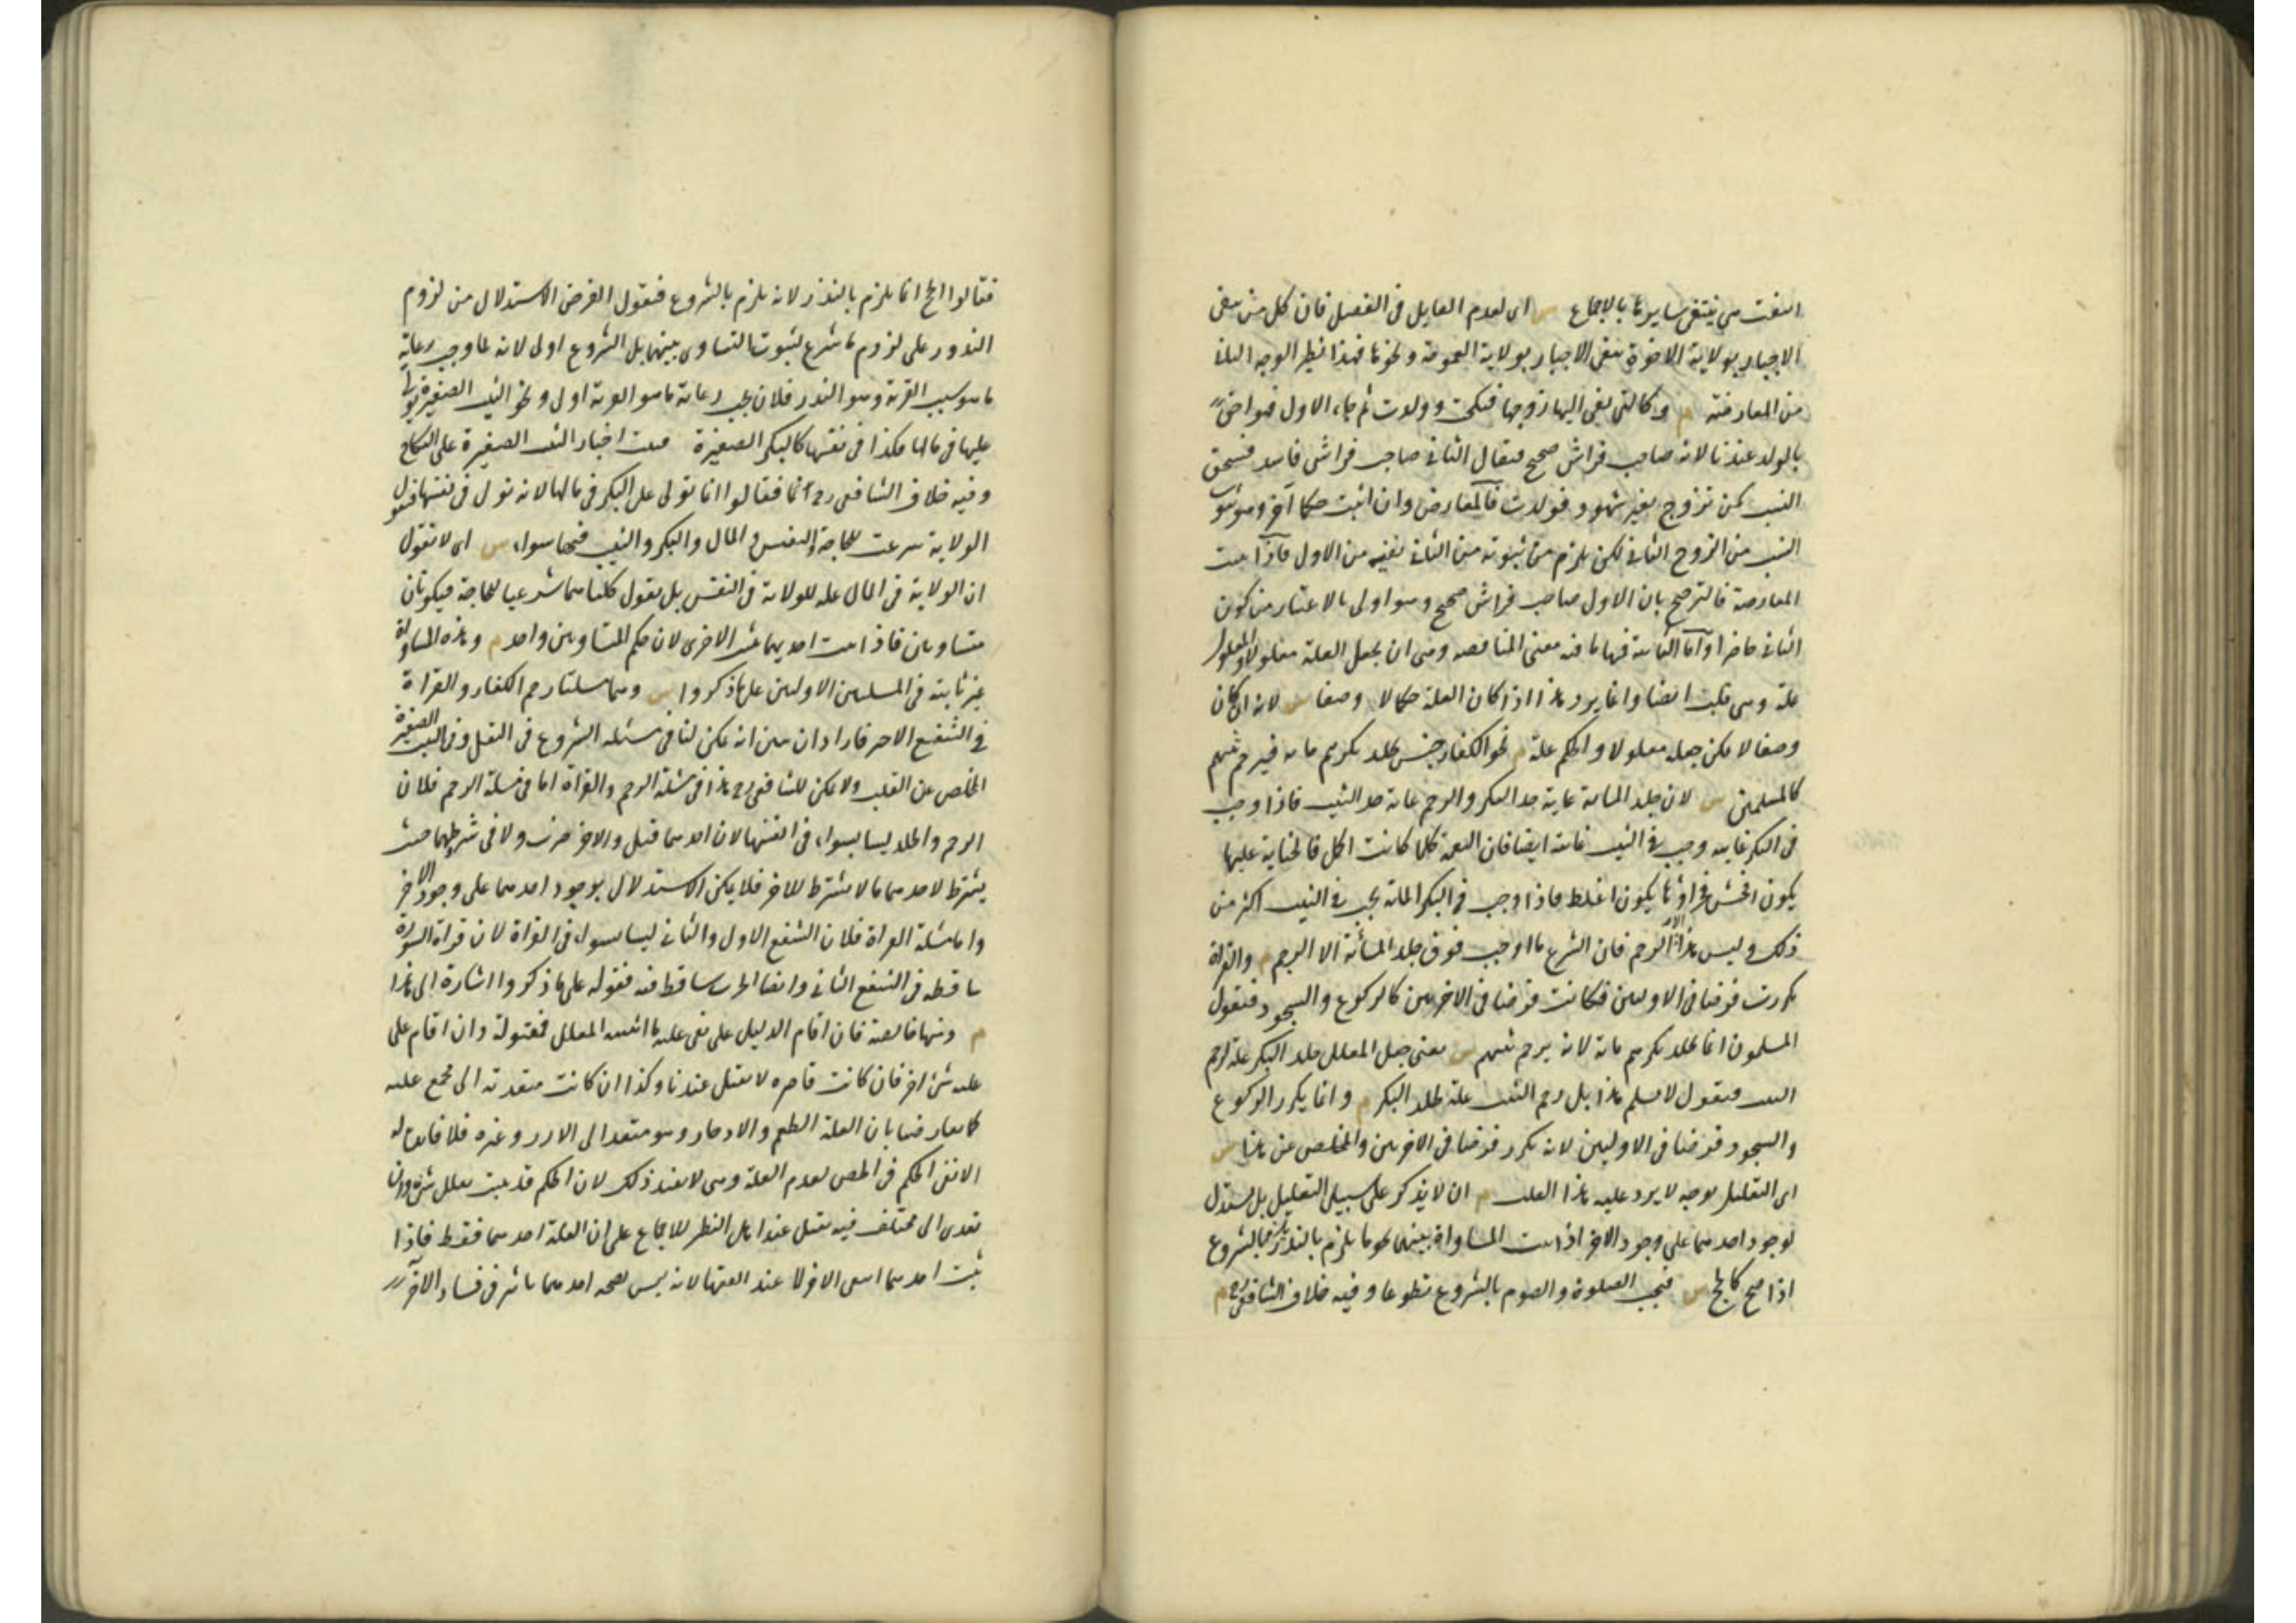 انتفت هي ينتفي سايرها بالاجماع س اى لعدم القايل فى الفصل فان كل من ينفى
الاجبار بولاية الاخوة ينفى الاجبار بولاية العمومة ونحوها فهذا نظير الوجه الثانى
من المعارضة م وكالتى نعى اليها زوجها فنكحت وولدت ثم جاء الاول فهو احق
بالولد عندنا لانه صاحب فراش صحيح فيقال الثانى صاحب فراش فاسد فيستحق
النسب كمن تزوج بغير شهود فولدت فالمعارض وان اثبت حكما آخر وهو ثبوت
النسب من الزوج الثانى لكن يلزم من ثبوته من الثانى نفيه من الاول فاذا ثبت
المعارضة فالترجيح بان الاول صاحب فراش صحيح وهو اولى بالاعتبار من كون
الثانى حاضرا واما الثانية فمنها ما فيه معنى المناقضة وهى ان يجعل العلة معلولا والمعلول
علة وهى قلب ايضا وانما يرد هذا اذا كان العلة حكما لا وصفا س لانه ان كان
وصفا لا يمكن جعله معلولا والحكم علة م نحو الكفار جنس يجلد بكرهم ماية فيرجم ثيبهم
كالمسلمين س لان جلد الماية غاية حد البكر والرجم غاية حد الثيب فاذا وجب
فى البكر غايته وجب فى الثيب غايته ايضا فان النعمة كلما كانت اكمل فالجناية عليها
يكون افحش فجزاؤها يكون اغلظ فاذا وجب فى البكر الماية يجب فى الثيب اكثر من
ذلك وليس هذا الا الرجم فان الشرع ما اوجب فوق جلد المائة الا الرجم م والقراة
تكررت فرضا فى الاوليين فكانت فرضا فى الاخريين كالركوع والسجود فنقول
المسلمون انما يجلد بكرهم ماية لانه يرجم ثيبهم س يعنى جعل المعلل جلد البكر علة لرجم
الثيب فنقول لا نسلم هذا بل رجم الثيب علة لجلد البكر م وانما يكرر الركوع
والسجود فرضا فى الاوليين لانه تكرر فرضا فى الاخريين والمخلص عن هذا س
اى التعليل بوجه لا يرد عليه هذا القلب م ان لا يذكر على سبيل التعليل بل يستدل
بوجود احدهما على وجود الاخر اذا ثبت المساواة بينهما نحو ما يلزم بالنذر يلزم بالشروع
اذا صح كالحج س فيجب الصلوة والصوم بالشروع تطوعا وفيه خلاف الشافعى رح م
فقالوا الحج انما يلزم بالنذر لانه يلزم بالشروع فنقول الغرض الاستدلال من لزوم
النذور على لزوم ما شرع لثبوت التساوى بينهما بل الشروع اولى لانه لما وجب رعاية
ما هو سبب القربة وهو النذر فلان يجب رعاية ما هو القربة اولى ونحو الثيب الصغيرة يولى
عليها فى مالها فكذا فى نفسها كالبكر الصغيرة فيثبت اجبار الثيب الصغيرة على النكاح
وفيه خلاف الشافعى رح م فقالوا انما يولى على البكر فى مالها لانه يولى فى نفسها فنقول
الولاية شرعت للحاجة والنفس والمال والبكر والثيب فيها سواء س اى لا نقول
ان الولاية فى المال علة للولاية فى النفس بل نقول كلتاهما شرعيا للحاجة فيكونان
متساويين فاذا ثبت احديهما ثبت الاخرى لان حكم المتساويين واحد م وهذه المساواة
غير ثابتة فى المسلتين الاوليين على ما ذكروا س وهما مسلتا رجم الكفار والقراة
فى الشفع الاخر فاراد ان يبين انه يمكن لنا فى مسئلة الشروع فى النفل وفى الثيب الصغيرة
المخلص عن القلب ولا يمكن للشافعى رح هذا فى مسئلة الرجم والقراة اما فى مسئلة الرجم فلان
الرجم والجلد ليسا بسواء فى انفسهما لان احدهما قتل والاخر ضرب ولا فى شرطهما حيث
يشترط لاحدهما ما لا يشترط للاخر فلا يمكن الاستدلال بوجود احدهما على وجود الاخر
واما مسئلة القراة فلان الشفع الاول والثانى ليسا بسواء فى القراة لان قراة السورة
ساقطة فى الشفع الثانى وايضا الجهر ساقط فيه فقوله على ما ذكروا اشارة الى هذا
م ومنها خالصة فان اقام الدليل على نفى علية ما اثبته المعلل فمقبولة وان اقام على
علية شئ اخر فان كانت قاصرة لا يقبل عندنا وكذا ان كانت متعدية الى مجمع عليه
كما يعارضنا بان العلة الطعم والادخار وهو متعد الى الارز وغيره فلا فائدة له
الا نفى الحكم فى الجص لعدم العلة وهى لا تفيد ذلك لان الحكم قد يثبت بعلل شتى وان
تعدى الى مختلف فيه يقبل عند اهل النظر للاجماع على ان العلة احدهما فقط فاذا
ثبت احدهما انتفى الاخر لا عند الفقهاء لانه ليس لصحة احدهما تاثير فى فساد الآخر